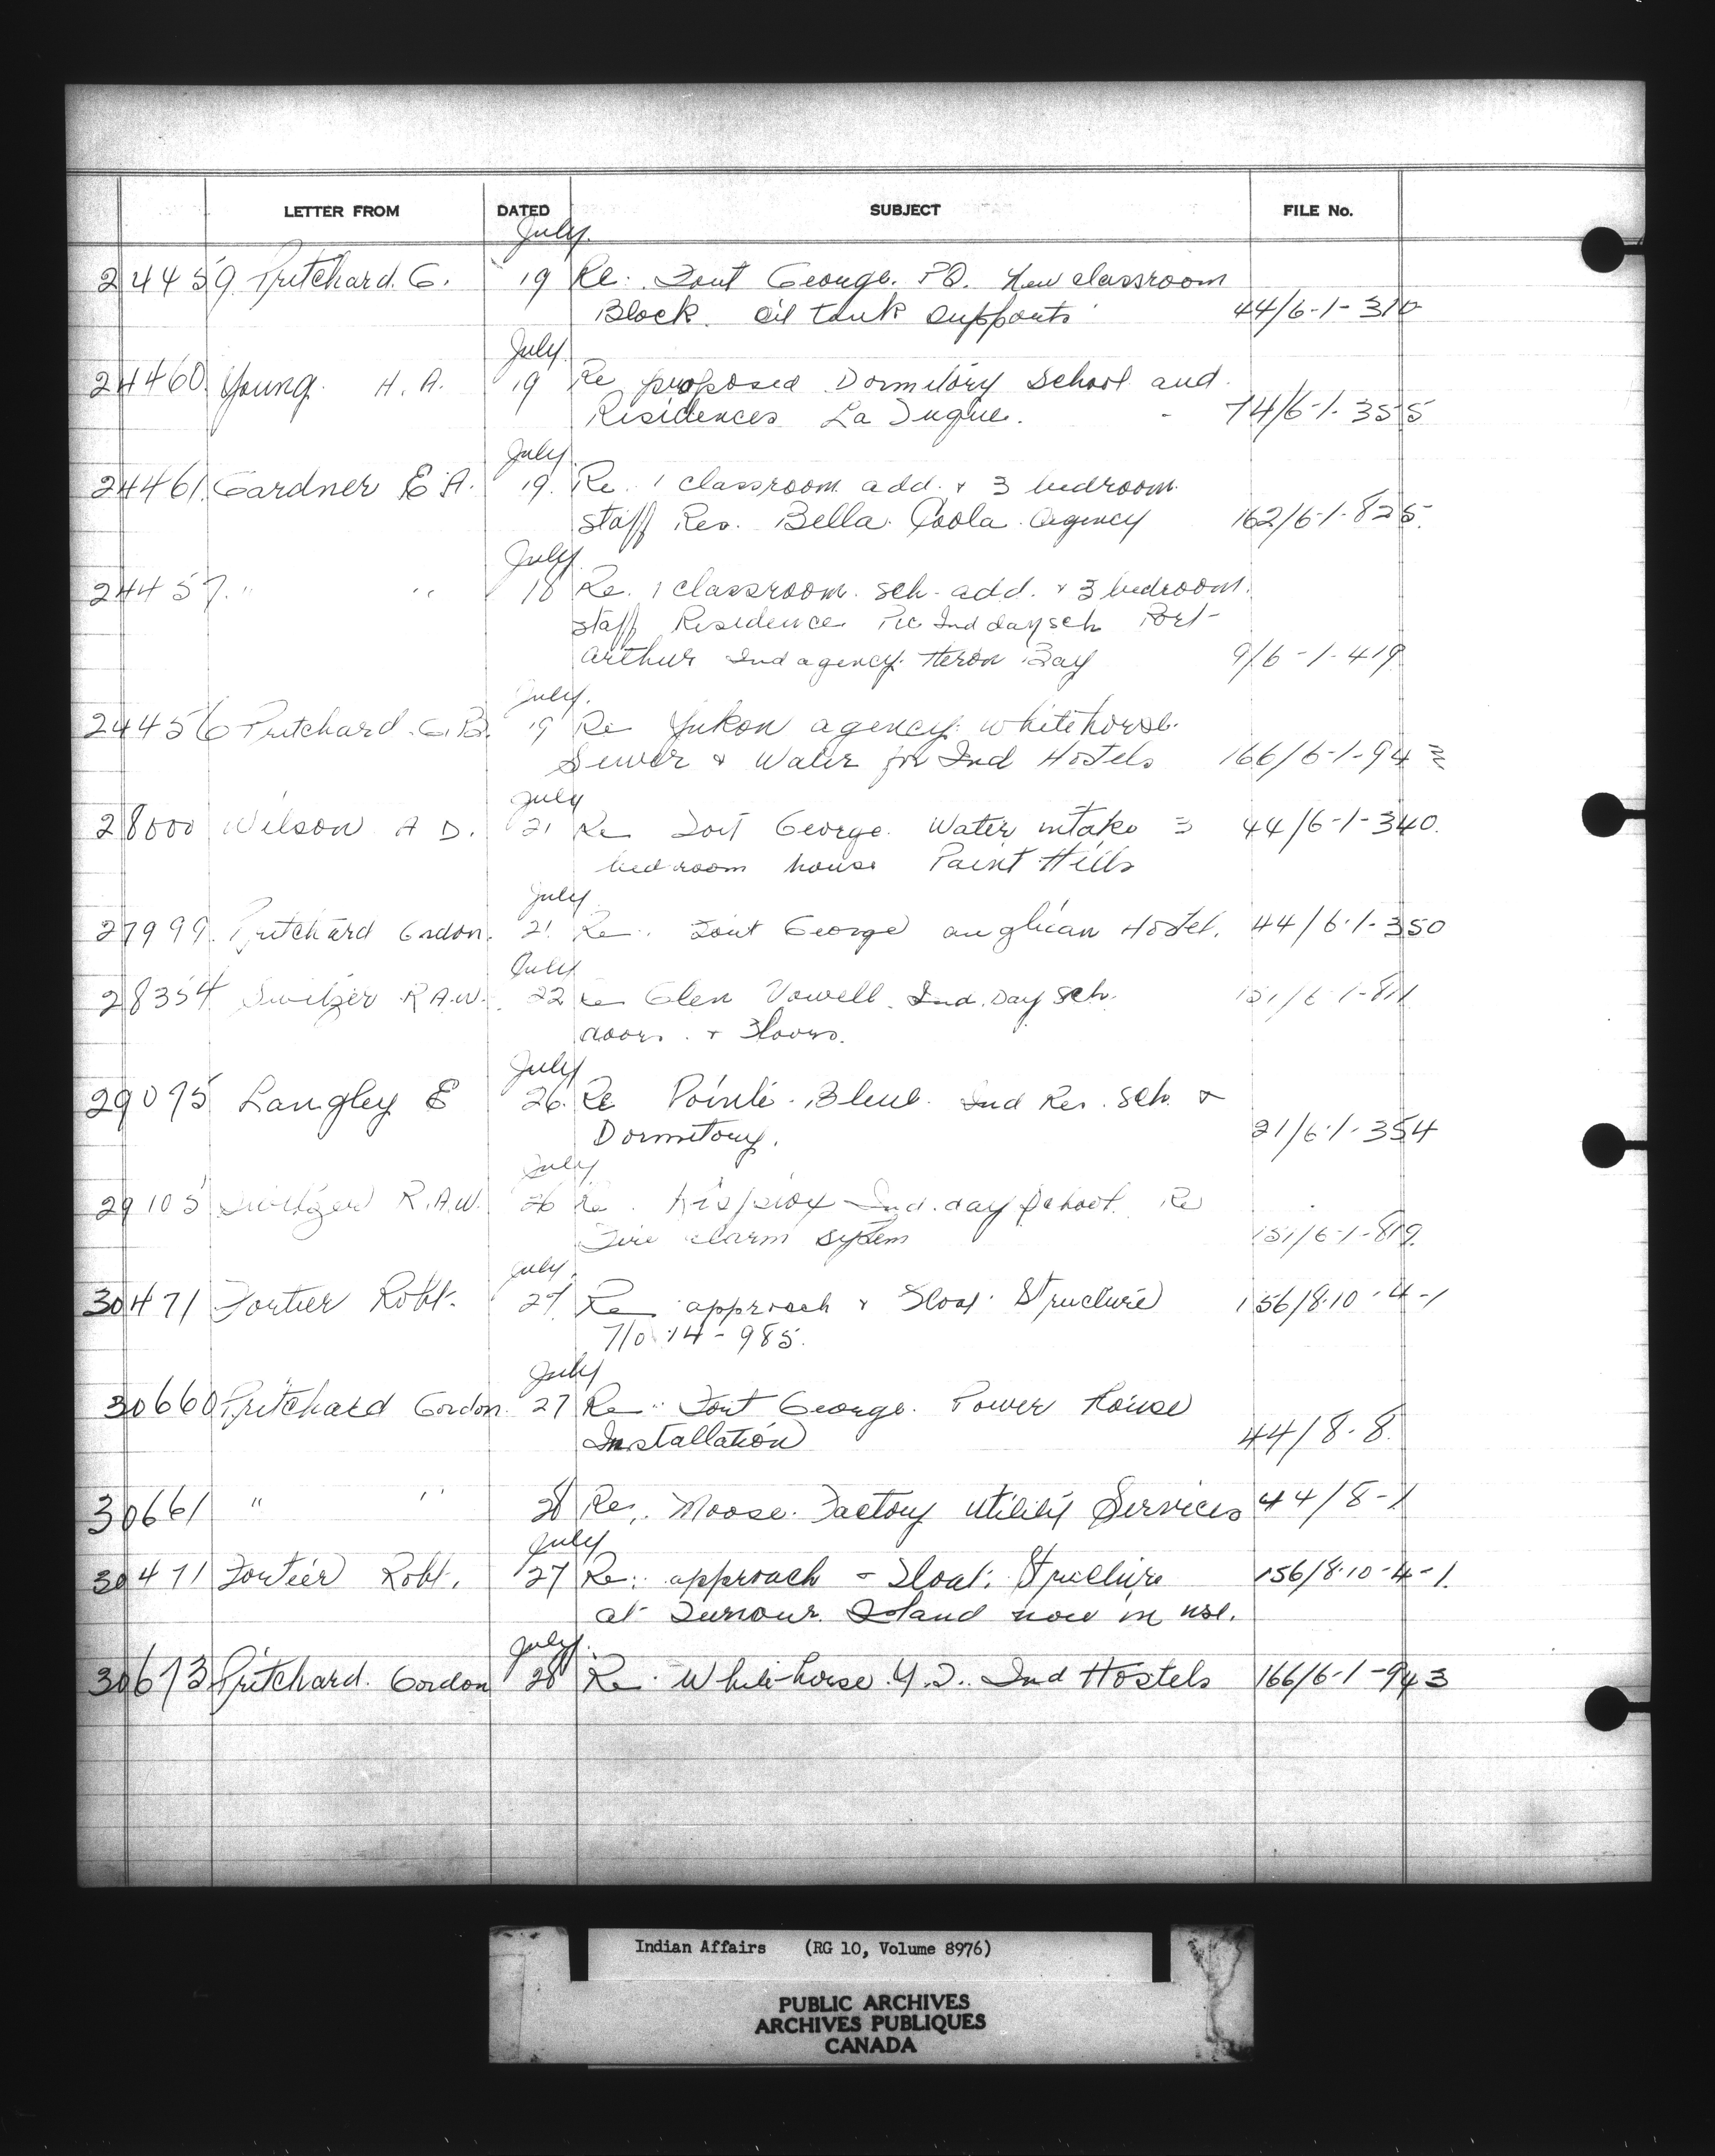 LETTER FROM DATED SUBJECT FILE No.
July.
24459 Pritchard. G. 19 Re: Fort George. P.Q. New classroom
Block. oil tank supports 44/6-1-310
July
24460 Young. H. A. 19 Re proposed Dormitory School and
Residences La Tuque. 74/6-1-355
July
24461. Gardner E A. 19. Re. 1 classroom add. & 3 bedroom
staff Res. Bella Coola Agency 162/6-1-825.
July
24457. " " 18 Re. 1 classroom. sch. add. & 3 bedroom.
staff Residence Pic Ind day sch Port
Arthur Ind agency. Heron Bay 9/6-1-419
July.
24456 Pritchard. G.B. 19 Re Yukon agency. Whitehorse.
Sewer & Water for Ind Hostels 166/6-1-943
July
28000 Wilson A D. 21 Re Fort George. Water intake 3 44/6-1-340.
bedroom house Paint Hills
July
27999. Pritchard Gordon. 21. Re. Fort George Anglican Hostel. 44/6-1-350
July
28354 Switzer R.A.W. 22 Re Glen Vowell. Ind. Day Sch.
doors. & Floors. 151/6-1-811
July
29075 Langley E 26. Re Pointe. Bleue. Ind Res. Sch. &
Dormitory. 21/6-1-354
July
29105 Switzer R.A.W. 26 Re. Kispiox Ind. day School. Re
Fire alarm system 151/6-1-819.
July.
30471 Fortier Robt. 27. Re approach & Float Structure 156/8-10-4-1
No 14-985.
July
30660 Pritchard Gordon. 27 Re: Fort George. Power House
Installation 44/8-8.
30661 " " 28 Re. Moose. Factory utility Services 44/8-1
July
30471 Fortier Robt. 27 Re: approach - Float. Structure 156/8-10-4-1.
at Turnour Island now in use.
July.
30673 Pritchard. Gordon 28 Re. Whitehorse Y.T. Ind Hostels 166/6-1-943
Indian Affairs (RG 10, Volume 8976)
PUBLIC ARCHIVES
ARCHIVES PUBLIQUES
CANADA